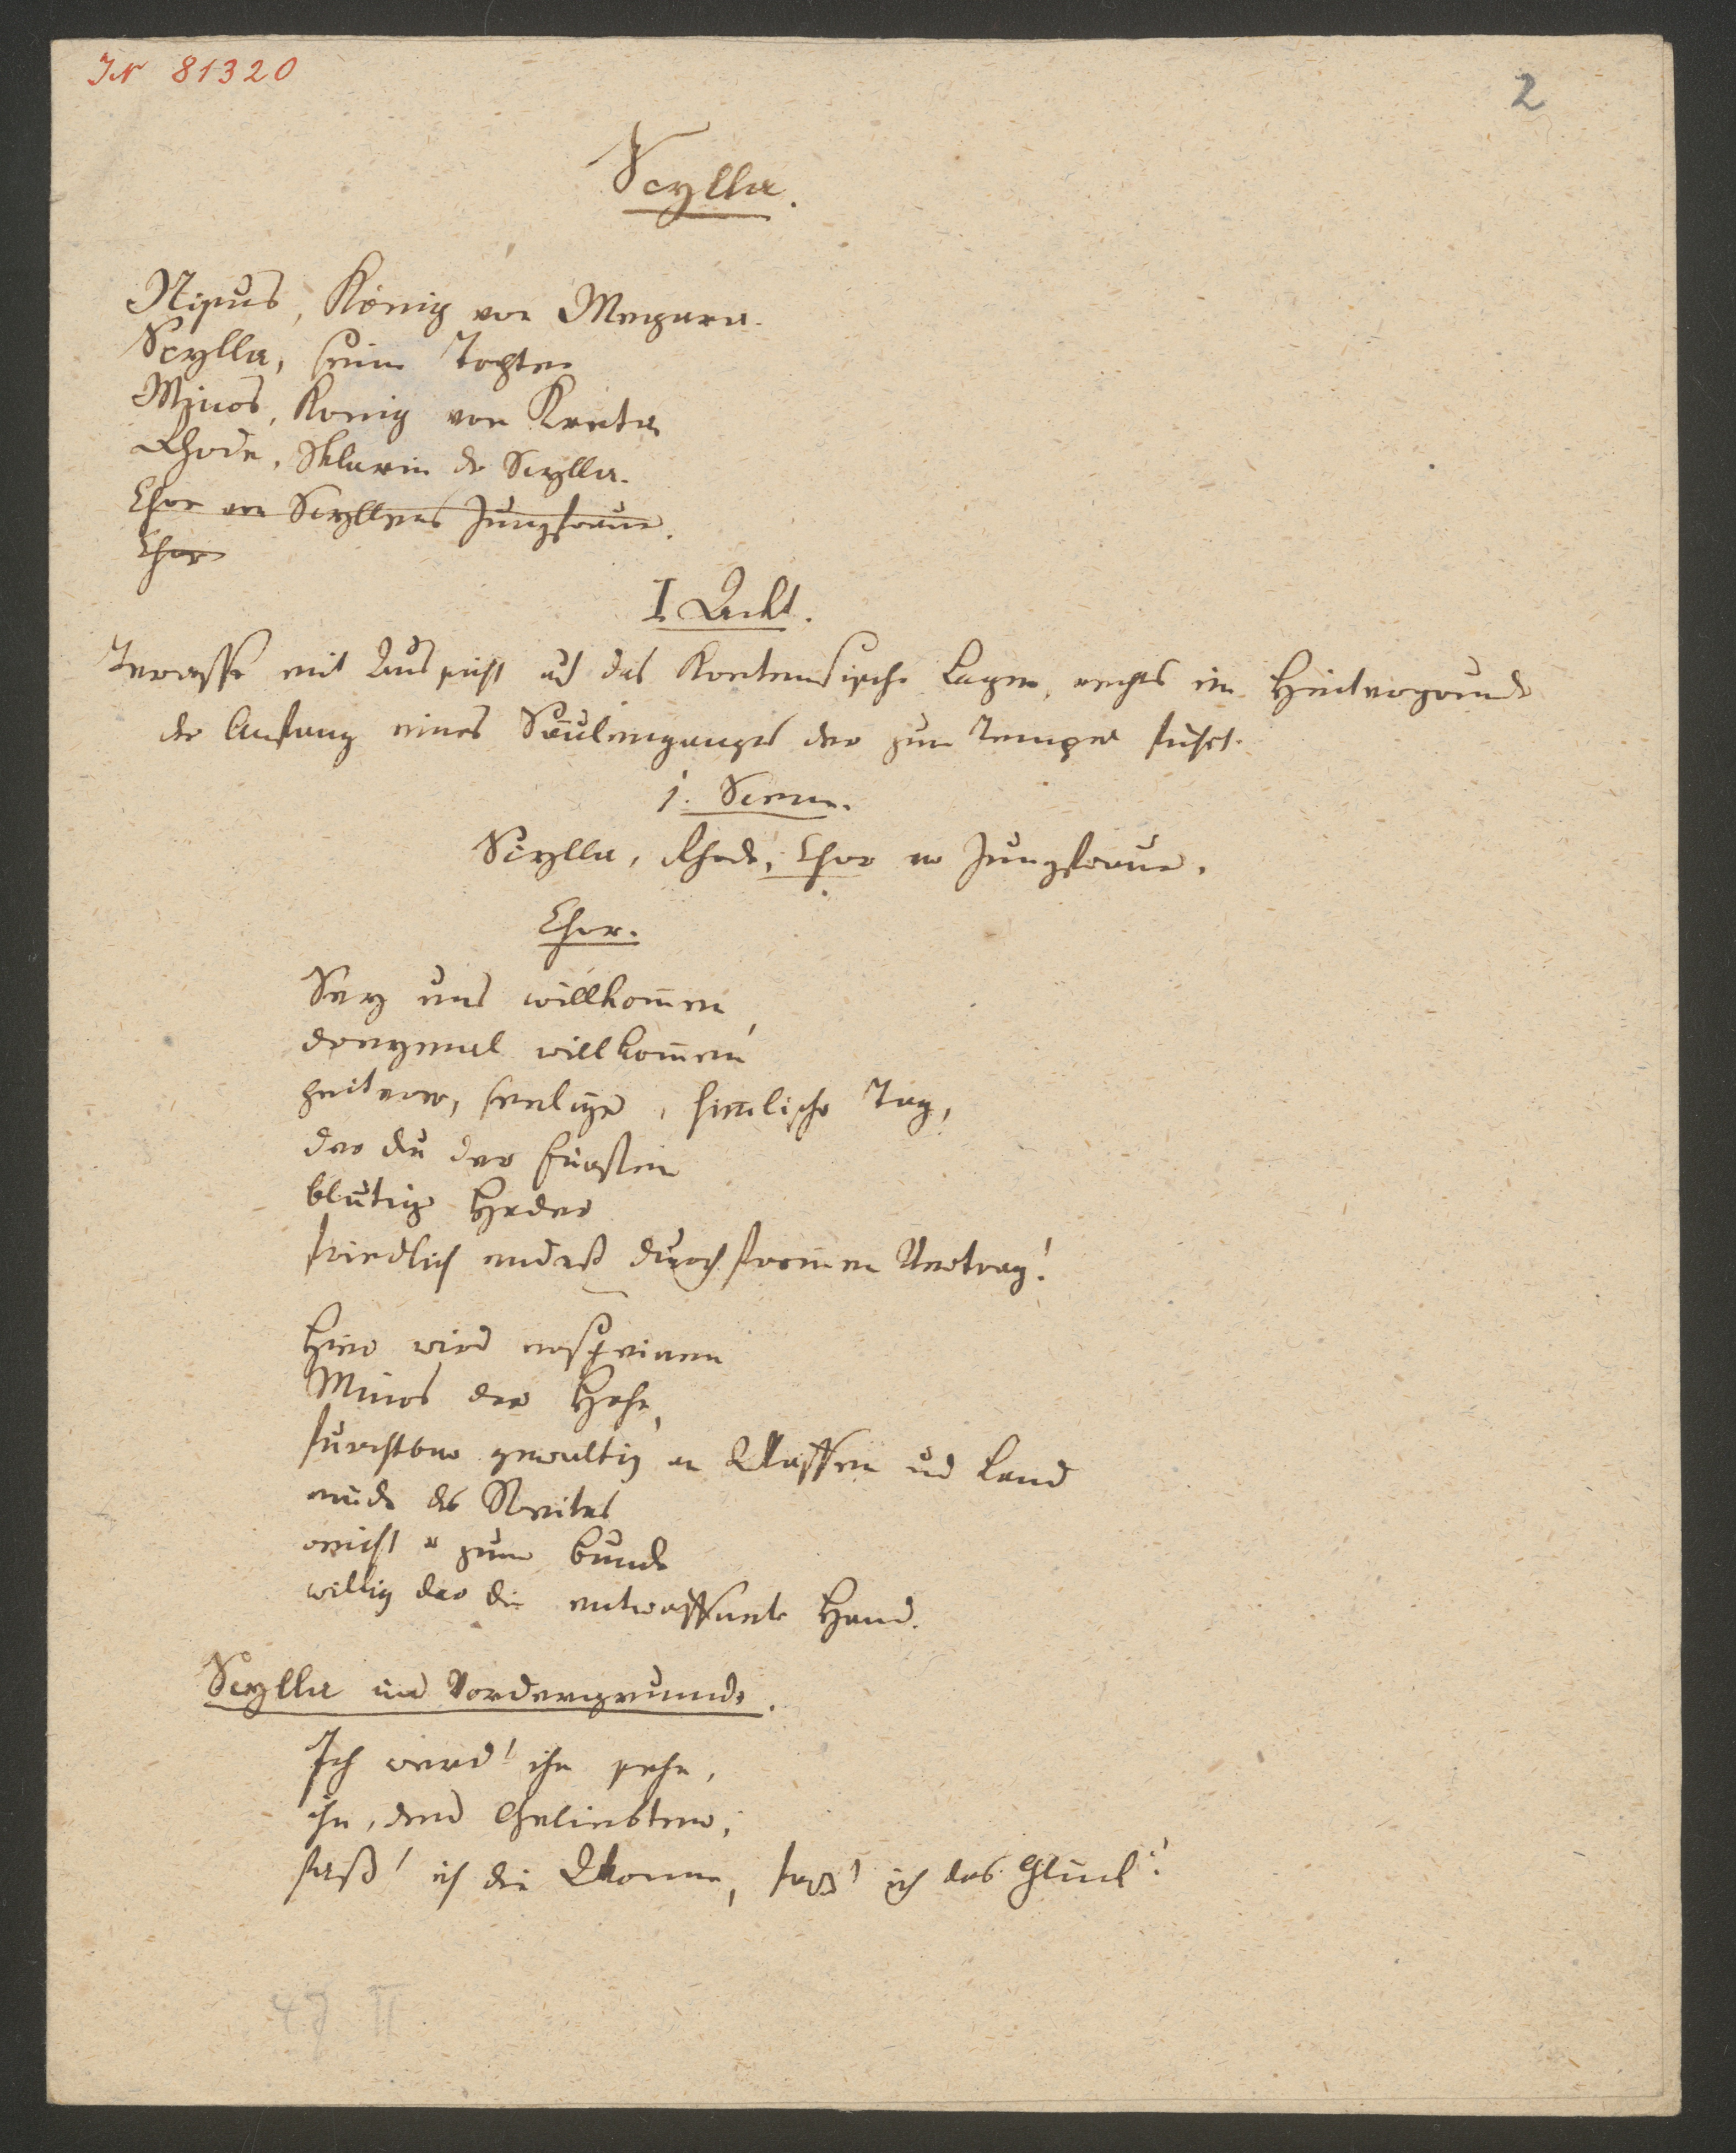 IN 81320
2
Scylla.
Nisus, König von Megara.
Scylla, seine Tochter
Minos, König von Kreta
Rhode, Sklavin der Scylla.
Chor von Scyllens Jungfrauen.
Chor
I Ackt.
Terasse mit Aussicht auf das Kretensische Lager, rechts im Hintergrunde
der Anfang eines Säulenganges der zum Tempel führt.
1. Scene.
Scylla, Rhode, Chor von Jungfrauen.
Chor.
Sey uns willkom̅en,
dreymal willkom̅en
heiterer, seeliger, him̅lischer Tag,
der du der Fürsten
blutigen Hader
friedlich endest durch from̅en Vertrag!
Hier wird erscheinen
Minos der Hohe,
furchtbar gewaltig an Waffen und Land
müde des Streites
reicht er zum Bunde
willig dar die entwaffnete Hand.
Scylla im Vordergrunde.
Ich werd' ihn sehen,
ihn, den Geliebten,
faß' ich die Wonne, faß' ich das Glück?
47 II